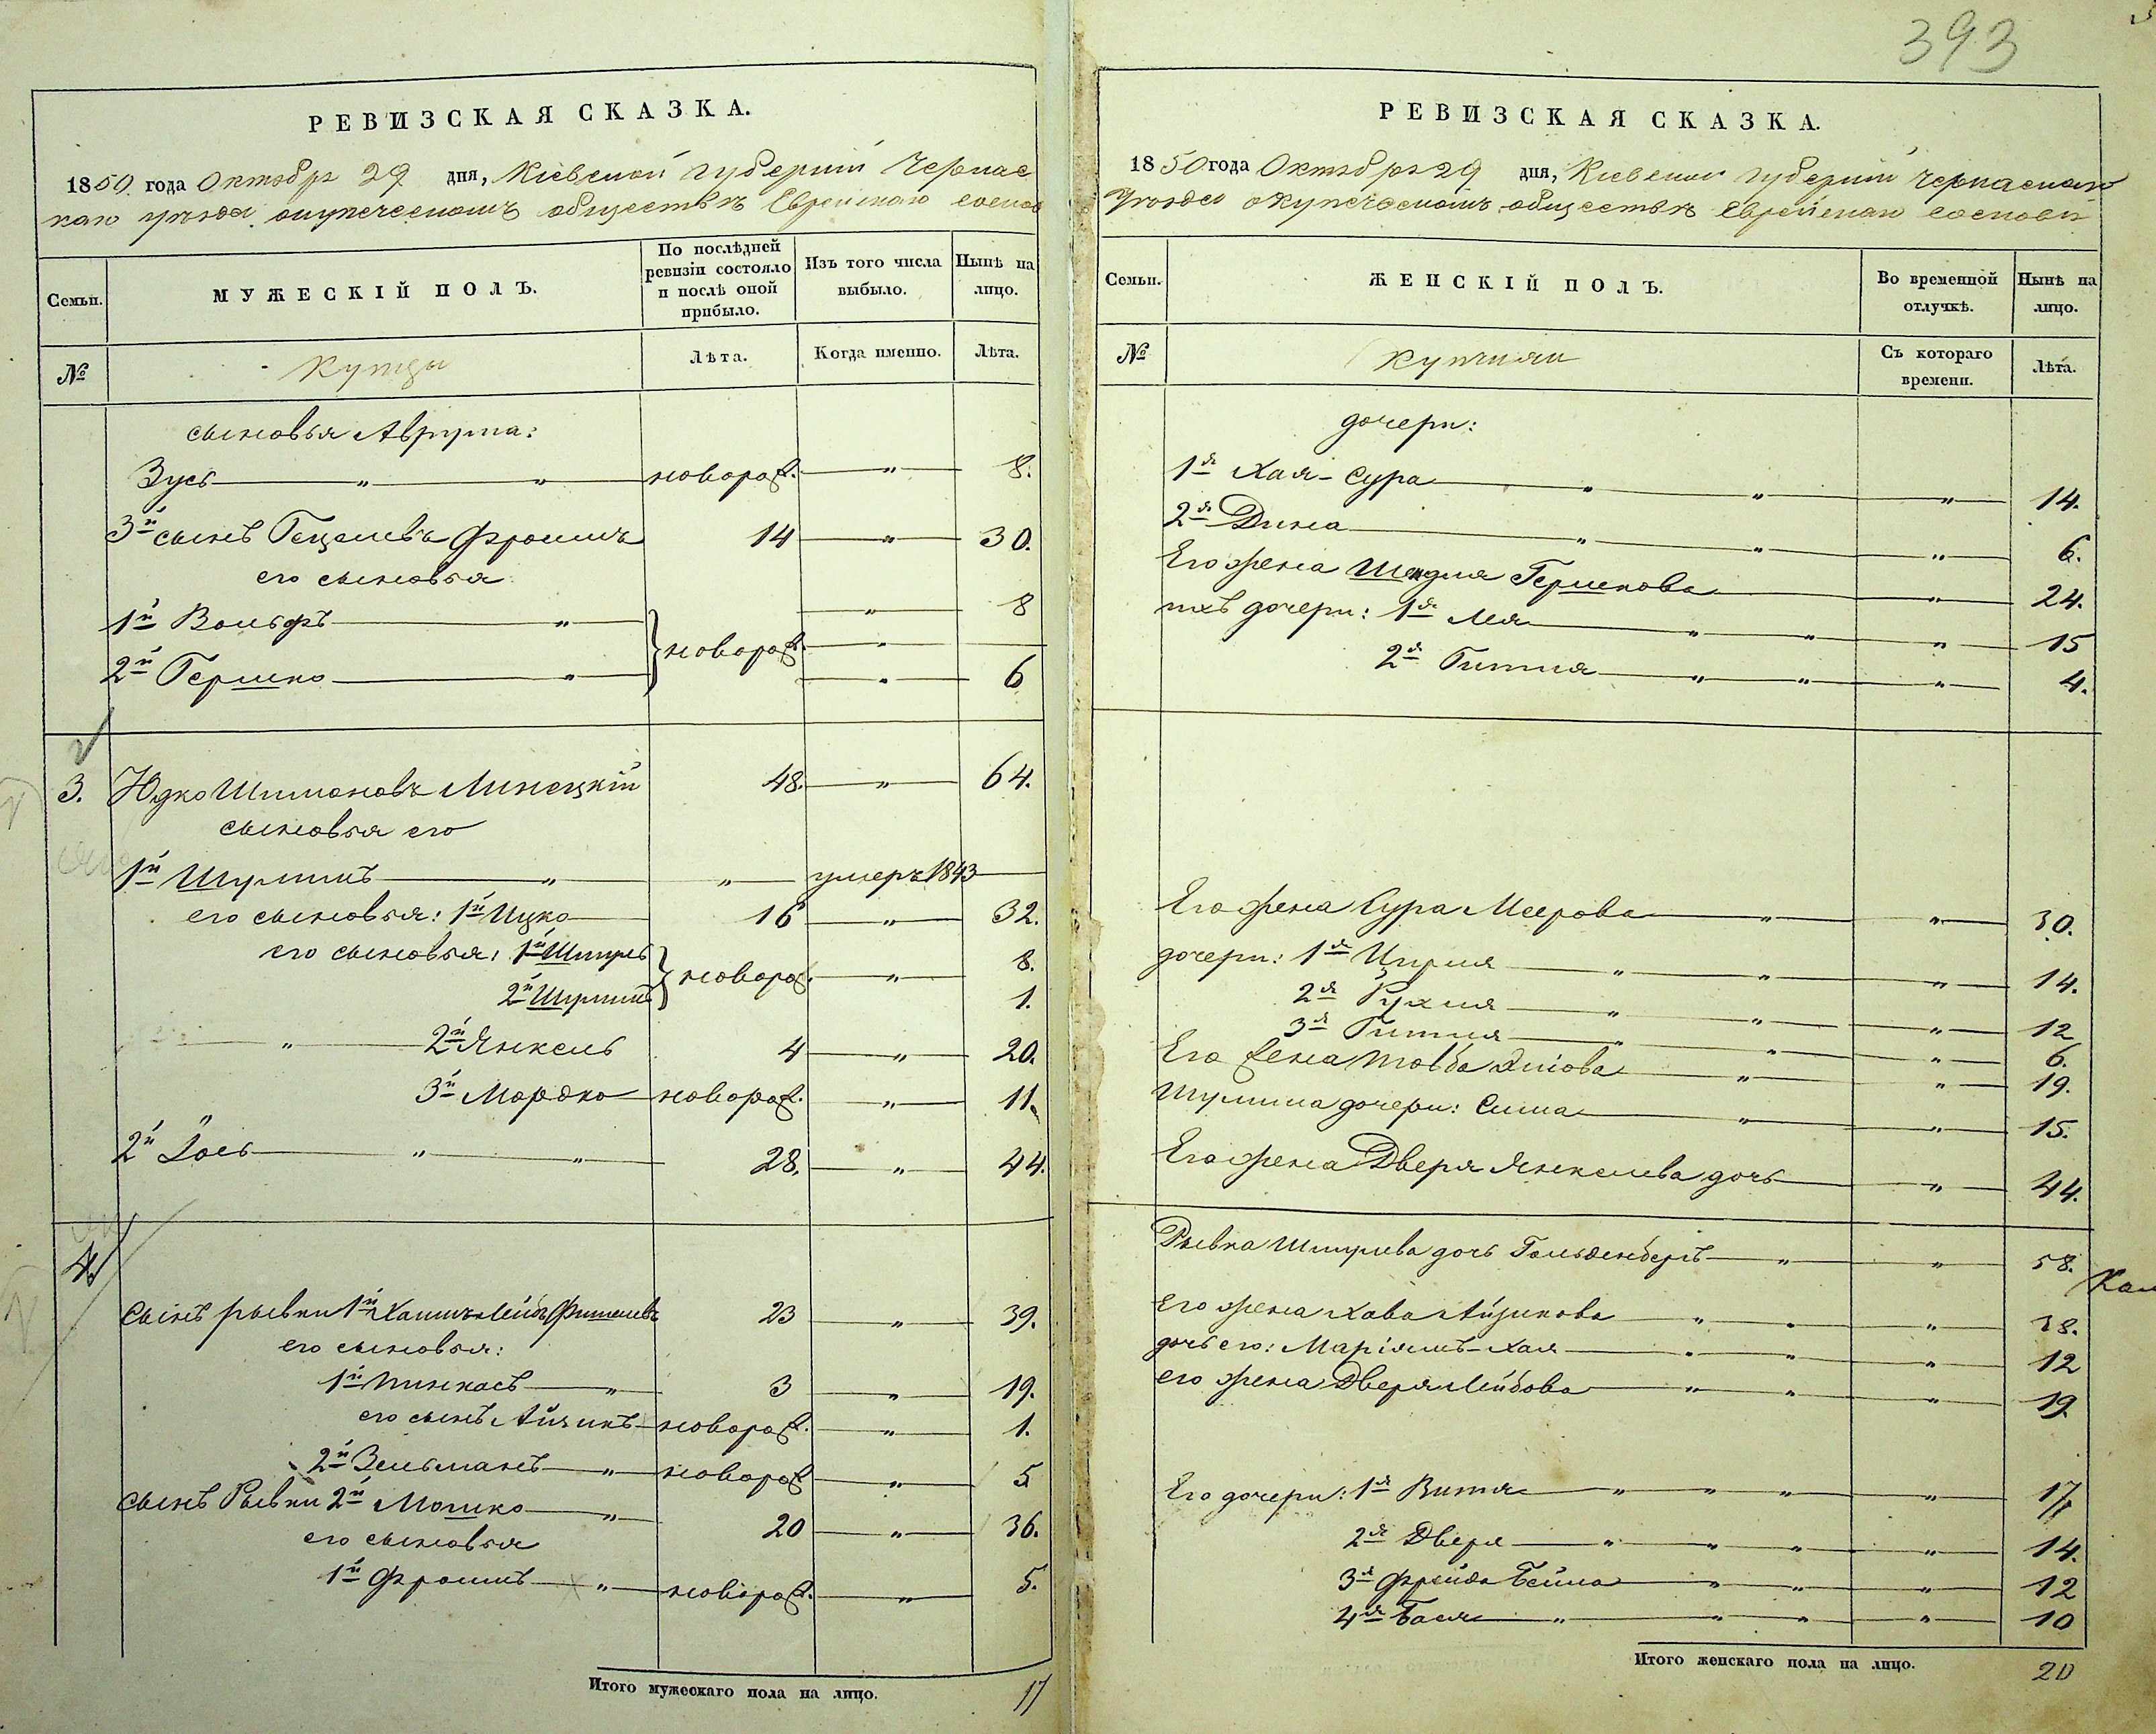 393
РЕВИЗСКАЯ СКАЗКА.
1850 года Октября 29 дня, Кіевской губерніи Черкас
каго уѣзда о купеческомъ обществѣ Еврейскаго сослов
Семьи.
МУЖЕСКІЙ ПОЛЪ.
По послѣдней ревизіи состояло и послѣ оной прибыло.
Изъ того числа выбыло.
Нынѣ на лицо.
№
Купцы
Лѣта.
Когда именно.
Лѣта.
сыновья Аврума:
Зусь " " новорож. " 8.
3й сынъ Гецелевъ Фроимъ 14 " 30.
его сыновья
1й Вольфъ " " 8
новорож. "
2й Гершко " " 6
3. Юдко Шимоновъ Линецкій 48. " 64.
сыновья его
1й Шулимъ " " умеръ 1843
его сыновья: 1й Ицко 16 " 32.
его сыновья: 1й Шмуль 8.
новорож. "
2й Шулимъ 1.
" 2й Янкель 4 " 20.
3й Мордко новорож. " 11.
2й Іось " " 28. " 44.
4
сынъ рывки 1й Хаимъ Лейбъ Фишелевъ 23 " 39.
его сыновья:
1й Пинкасъ " 3 " 19.
его сынъ Айзикъ новорож. " 1.
2й Зельманъ " новорож " 5
сынъ Рывки 2й Мошко " 20 " 36.
его сыновья
1й Фроимъ " новорож. " 5.
Итого мужескаго пола на лицо. 17
РЕВИЗСКАЯ СКАЗКА.
1850 года Октября 29 дня, Кіевской губерніи Черкаскаго
Уѣзда о купеческомъ обществѣ Еврейскаго сослові
Семьи.
ЖЕНСКІЙ ПОЛЪ.
Во временной отлучкѣ.
Нынѣ на лицо.
№
Купчихи
Съ котораго времени.
Лѣта.
дочери:
1я Хая-Сура " " " 14.
2я Дина " " " 6.
Его жена Шендля Гершкова " 24.
ихъ дочери: 1я Лея " " " 15
2я Гитля " " " 4.
Его жена Сура Меерова " " 30.
дочери: 1я Цирля " " " 14.
2я Рухля " " " 12
3я Гитля " " " 6.
Его жена Товба " " 19.
Шулима дочери: Сима " " 15.
Его жена Двера Янкелева дочь " 44.
Рывка Шмулева дочь Гольденбергъ " " 58.
Его жена Хава Айзикова " " " 38.
дочь его: Маріямъ-Хая " " " 12
его жена Двера Лейбова " " " 19.
Его дочери: 1я Витя " " " " 17
2я Двера " " " " 14.
3я Фрейда Бейла " " " 12
4я Бася " " " " 10
Итого женскаго пола на лицо. 20